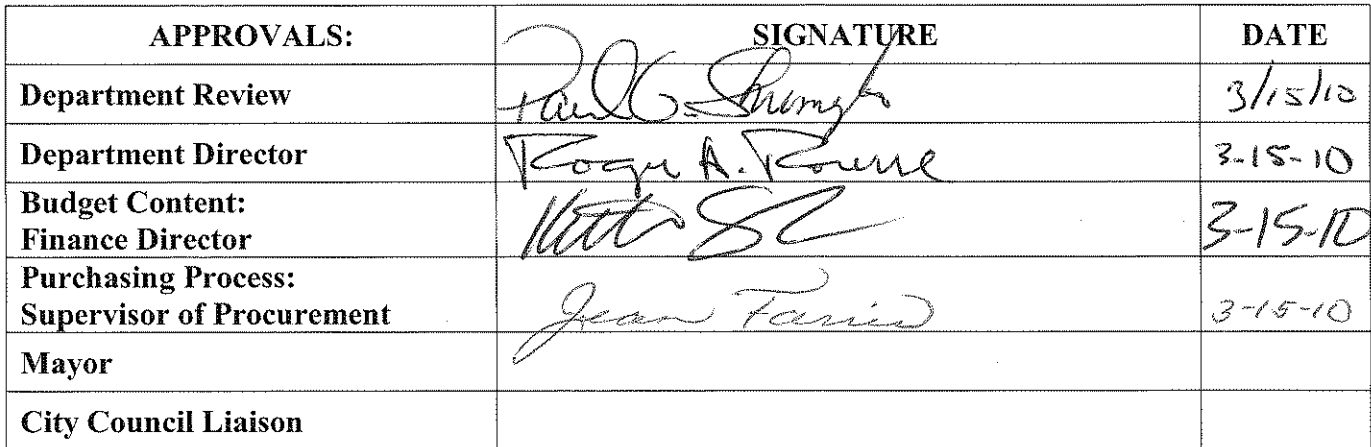 APPROVALS: SIGNATURE DATE
Department Review Paul G. 3/15/10
Department Director Roger A. 3-15-10
Budget Content:
Finance Director 3-15-10
Purchasing Process:
Supervisor of Procurement Jean 3-15-10
Mayor
City Council Liaison